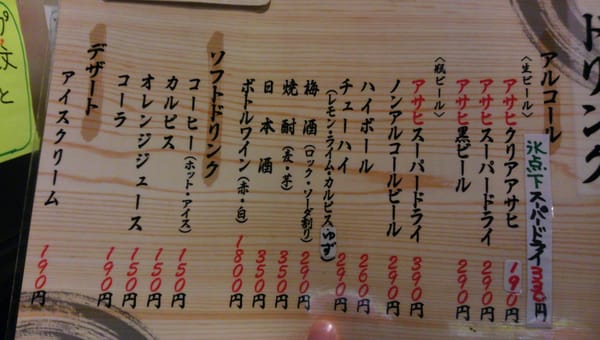 ドリンク
アルコール
氷点下スーパードライ 330円
〈生ビール〉
アサヒクリアアサヒ 190円
アサヒスーパードライ 290円
アサヒ黒ビール 290円
〈瓶ビール〉
アサヒスーパードライ 390円
ノンアルコールビール 290円
ハイボール 260円
チューハイ 290円
(レモン・ライム・カルピス・ゆず)
梅酒(ロック・ソーダ割り) 290円
焼酎(麦・芋) 350円
日本酒 350円
ボトルワイン(赤・白) 1800円
ソフトドリンク
コーヒー(ホット・アイス) 150円
カルピス 150円
オレンジジュース 150円
コーラ 190円
デザート
アイスクリーム 190円